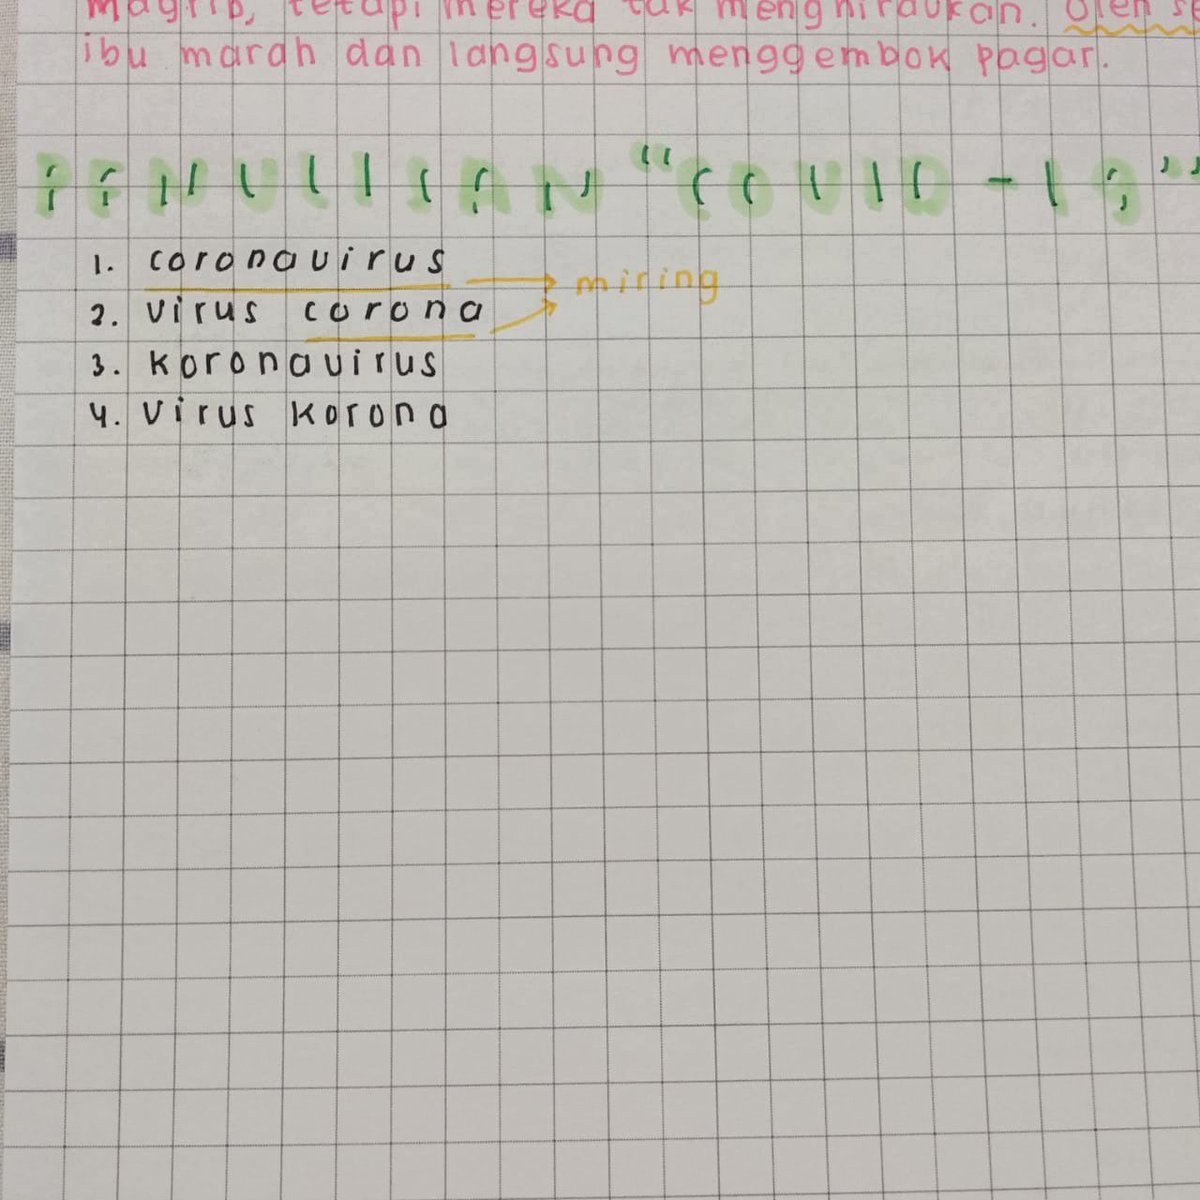 Magrib, tetapi mereka tak menghiraukan. Oleh
ibu marah dan langsung menggembok pagar.
PENULISAN "COVID-19"
1. coronavirus
miring
2. virus corona
3. koronavirus
4. virus korona